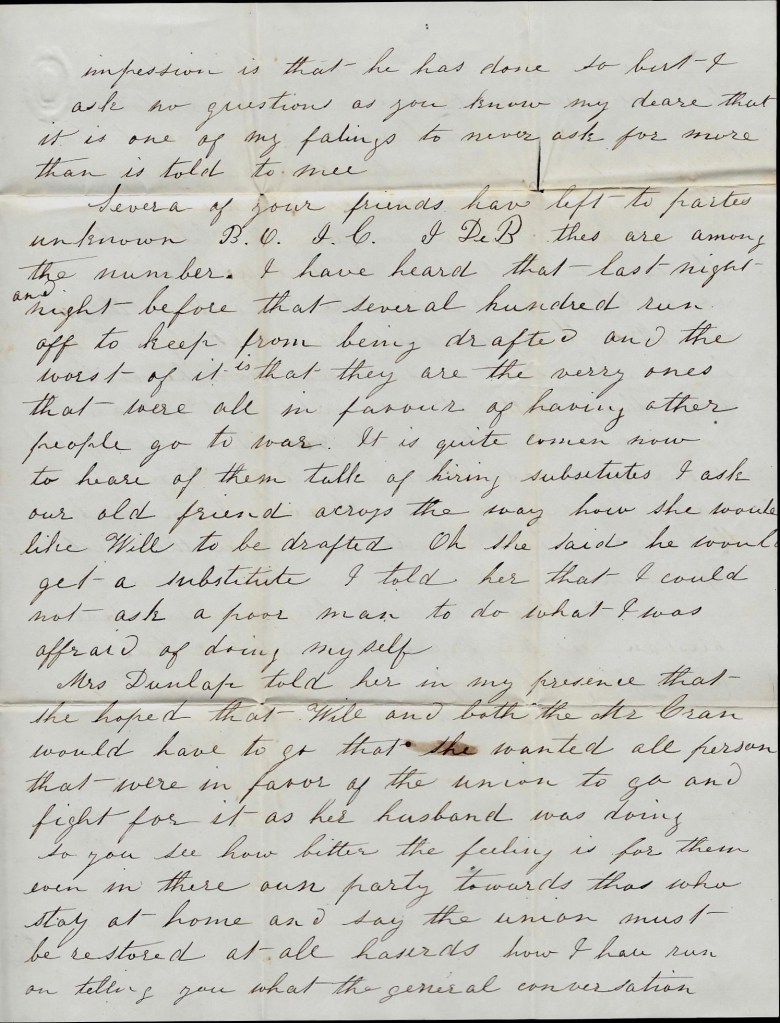 impession is that he has done so but I
ask no questions as you know my deare that
it is one of my falings to never ask for more
than is told to mee
Severa of your friends hav left to partes
unknown B. O. I. C. I DeB thes are among
the number. I have heard that last night
and night before that several hundred run
off to keep from being drafted and the
worst of it is that they are the verry ones
that were all in favour of having other
people go to war. It is quite comen now
to heare of them talk of hiring substitutes I ask
our old friend across the way how she would
like Will to be drafted Oh she said he would
get a substitute I told her that I could
not ask a poor man to do what I was
affraid of doing myself
Mrs Dunlap told her in my presence that
she hoped that Will and both the Mr Cran
would have to go that she wanted all person
that were in favor of the union to go and
fight for it as her husband was doing
so you see how bitter the feeling is for them
even in there oun party towards thos who
stay at home and say the union must
be restored at all haserds how I hav run
on telling you what the general conversation